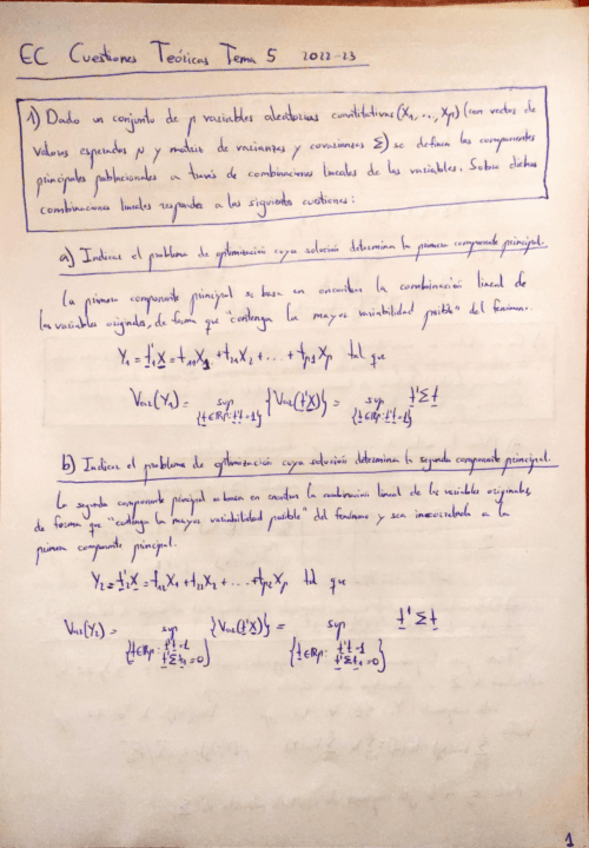 EC Cuestiones Teóricas Tema 5 2022-23
1) Dado un conjunto de p variables aleatorias cuantitativas (X₁, ..., Xp) (con vector de
valores esperados μ y matriz de varianzas y covarianzas Σ) se definen las componentes
principales poblacionales a través de combinaciones lineales de las variables. Sobre dichas
combinaciones lineales responder a las siguientes cuestiones:
a) Indicar el problema de optimización cuya solución determina la primera componente principal.
La primera componente principal se basa en encontrar la combinación lineal de
las variables originales, de forma que "contenga la mayor variabilidad posible" del fenómeno.
Y₁ = t₁'X = t₁₁X₁ + t₂₁X₂ + ... + tp₁Xp tal que
Var(Y₁) = sup {Var(t'X)} = sup t'Σt
{t∈ℝp: t't=1} {t∈ℝp: t't=1}
b) Indicar el problema de optimización cuya solución determina la segunda componente principal.
La segunda componente principal se basa en encontrar la combinación lineal de las variables originales,
de forma que "contenga la mayor variabilidad posible" del fenómeno y sea incorrelada a la
primera componente principal.
Y₂ = t₂'X = t₁₂X₁ + t₂₂X₂ + ... + tp₂Xp tal que
Var(Y₂) = sup {Var(t'X)} = sup t'Σt
{t∈ℝp: t't=1 {t∈ℝp: t't=1
t'Σt₁=0} t'Σt₁=0}
1